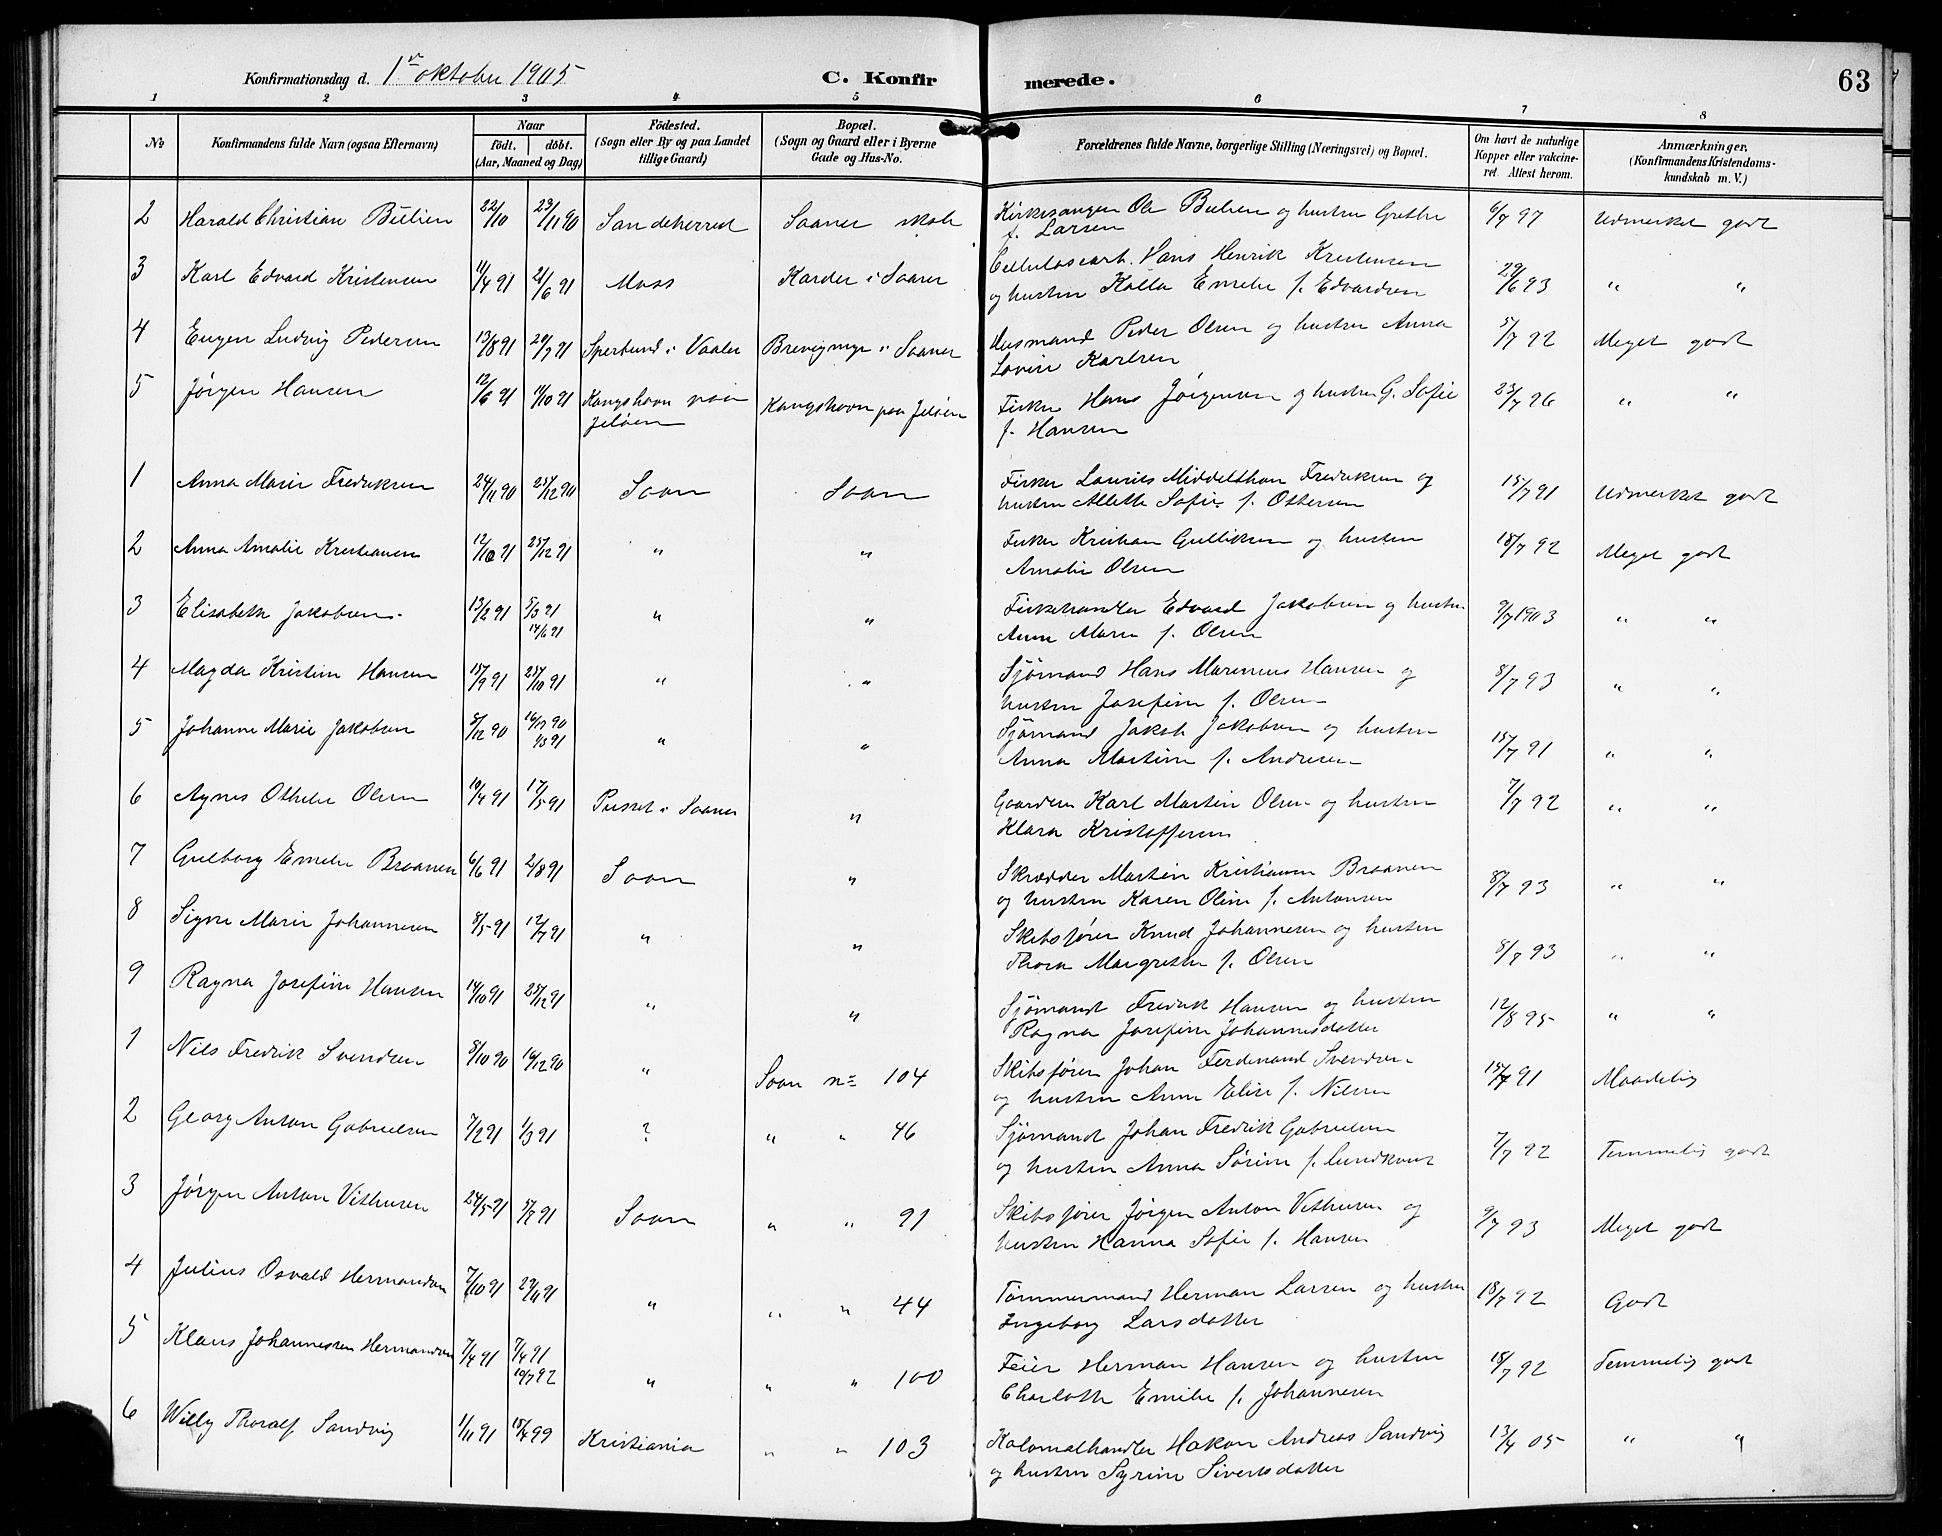 Konfirmationsdag d. 1ste oktober 1905 C. Konfirmerede. 63
1 2 3 4 5 6 7 8
No Konfirmandens fulde Navn (ogsaa Efternavn) Naar födt. döbt. (Aar, Maaned og Dag) Födested. (Sogn eller By og paa Landet tillige Gaard) Bopæl. (Sogn og Gaard eller i Byerne Gade og Hus-No. Forældrenes fulde Navne, borgerlige Stilling (Næringsvei) og Bopæl. Om havt de naturlige Kopper eller vakcineret. Attest herom. Anmærkninger. (Konfirmandens Kristendomskundskab m. V.)
2 Harald Christian Bülien 22/10 23/11 90 Sandeherred Saaner skole Kirkesanger Ole Bülien og hustru Grethe 6/7 97 Udmerket godt
f. Larsen
3 Karl Edvard Kristensen 11/4 91 21/6 91 Moss Karder i Saaner Cellulosearb. Hans Henrik Kristensen 29/6 93 " "
og hustru Kalla Emelie f. Edvardsen
4 Eugen Ludvig Pedersen 13/8 91 20/9 91 Sperbund i Vaaler Brevigmyr i Saaner Husmand Peder Olsen og hustru Anna 5/7 92 Meget godt
Lovise Karlsen
5 Jørgen Hansen 12/6 91 11/10 91 Kongshavn paa Jeløen Kongshavn paa Jeløen Fisker Hans Jørgensen og hustru G. Sofie 23/7 96 " "
f. Hansen
1 Anna Marie Fredriksen 24/11 90 25/12 90 Soon Soon Fisker Lauries Middelthon Fredriksen og 15/7 91 Udmerket godt
hustru Alette Sofie f. Ottersen
2 Anna Amalie Kristiansen 12/10 91 25/12 91 " " Fisker Kristian Gulliksen og hustru 18/7 92 Meget godt
Amalie Olsen
3 Elisabeth Jakobsen 13/2 91 5/3 91 14/6 91 " " Fiskehandler Edvard Jakobsen og hustru 9/7 1903 " "
Anne Marie f. Olsen
4 Magda Kristine Hansen 15/9 91 25/10 91 " " Sjømand Hans Marenius Hansen og 8/7 93 " "
hustru Josefine f. Olsen
5 Johanne Marie Jakobsen 5/12 90 16/12 90 1/3 91 " " Sjømand Jakob Jakobsen og hustru 15/7 91 " "
Anna Martine f. Andresen
6 Agnes Othelie Olsen 10/4 91 17/5 91 Pusset i Saaner " Gaardeier Karl Martin Olsen og hustru 7/7 92 " "
Klara Kristoffersen
7 Gulborg Emelie Braanen 6/6 91 2/8 91 Soon " Skrædder Martin Kristiansen Braanen 8/7 93 " "
og hustru Karen Oline f. Antonsen
8 Signe Marie Johannesen 8/5 91 12/7 91 " " Skibsfører Knud Johannesen og hustru 8/7 93 " "
Thora Margrethe f. Olsen
9 Ragna Josefine Hansen 14/10 91 25/12 91 " " Sjømand Fredrik Hansen og hustru 12/8 95 " "
Ragna Josefine Johannesdatter
1 Nils Fredrik Svendsen 8/10 90 16/12 90 " Soon no 104 Skibsfører Johan Ferdinand Svendsen 15/7 91 Maadelig
og hustru Anne Elise f. Nilsen
2 Georg Anton Gabrielsen 7/2 91 1/3 91 ? " " 46 Sjømand Johan Fredrik Gabrielsen 7/7 92 Temmelig godt
og hustru Anna Sørine f. Lundkvist
3 Jørgen Anton Vethusen 24/5 91 5/7 91 Soon " " 91 Skibsfører Jørgen Anton Vethusen og 9/7 93 Meget godt
hustru Hanna Sofie f. Hansen
4 Julius Osvald Hermansen 7/10 91 29/11 91 " " " 44 Tømmermand Herman Larsen og hustru 18/7 92 Godt
Ingeborg Larsdatter
5 Klaus Johannessen Hermansen 7/4 91 7/4 91 10/7 92 " " " 100 Feier Herman Hansen og hustru 18/7 92 Temmelig godt
Charlotte Emelie f. Johannesen
6 Willy Thoralf Sandvig 1/11 91 15/4 99 Kristiania " " 103 Kolonialhandler Hakon Andreas Sandvig 13/4 05 " "
og hustru Syrine Sivertsdatter